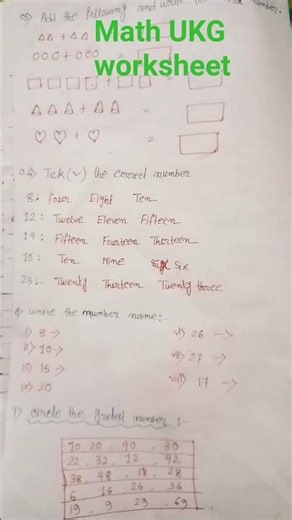 Math UKG
worksheet
Add the following and write the number.
△△ + △△
○○○ + ○○○ =
□□□□ + □□ =
△△△ + △△ =
♡♡ + ♡ =
Tick (✓) the correct number
8: four Eight Ten
12: Twelve Eleven Fifteen
19: Fifteen Fourteen Thirteen
10: Ten Nine Six
23:- Twenty Thirteen Twenty three
write the number name:-
i) 8 → vi) 26 →
ii) 10 → vii) 27 →
iii) 15 → viii) 17 →
iv) 20
circle the number :-
10, 20, 90, 30
22, 32, 12, 42
38, 48, 18, 28
6, 16, 26, 36
19, 9, 29, 69